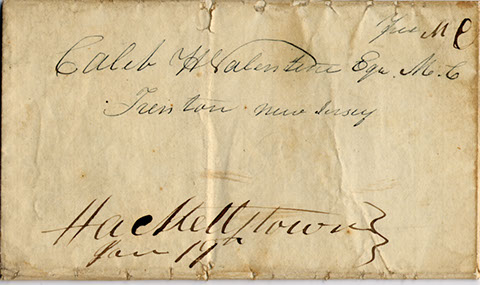 Free M C
Caleb H Valentine Esqr. M. C
Trenton new Jersey
Hackettstown
Jan 19th